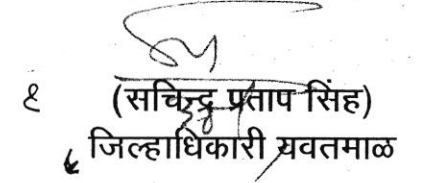 (सचिन्द्र प्रताप सिंह)
जिल्हाधिकारी यवतमाळ